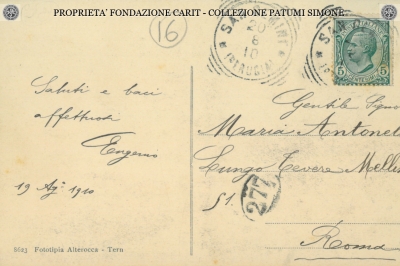 PROPRIETA' FONDAZIONE CARIT - COLLEZIONE PATUMI SIMONE
16
SAN GEMINI
20
8
10
(PERUGIA)
5
Saluti e baci
affettuosi
Eugenio
19 Ag. 1910
Gentile Sig
Maria Antonel
Lungo Tevere Mellin
51.
277
Roma
8623 Fototipia Alterocca - Terni